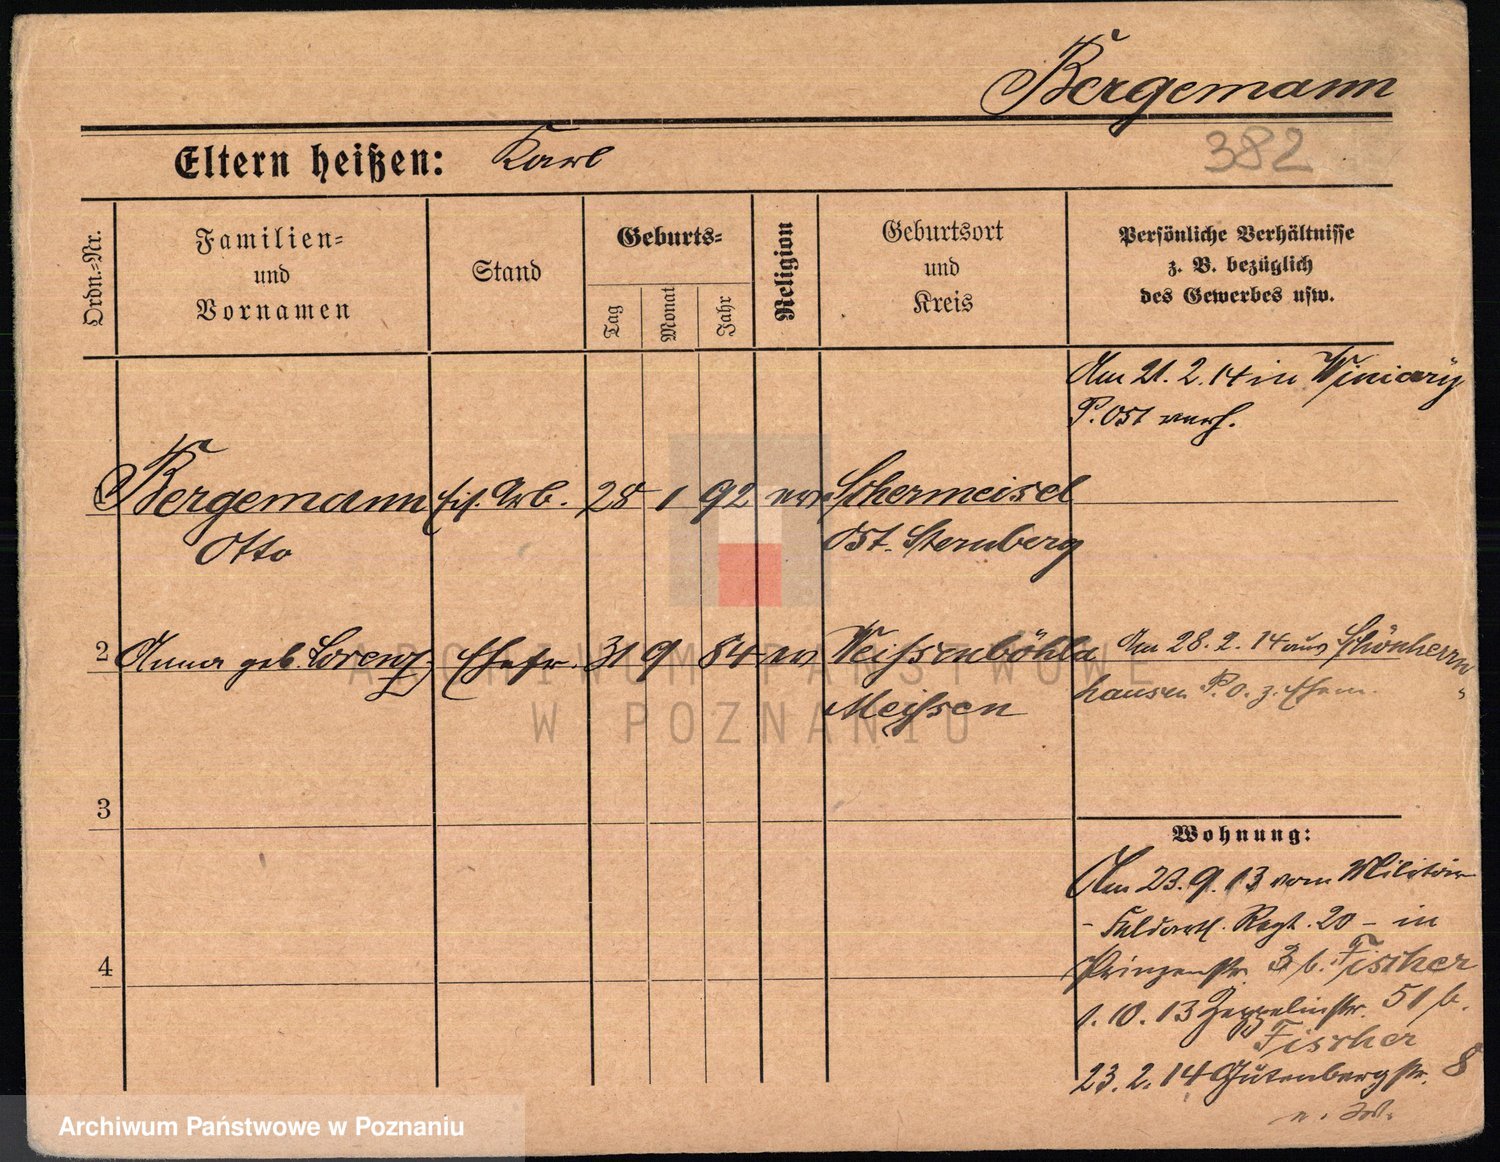 Bergemann
382
Eltern heißen: Karl
Ordn.-Nr.
Familien- und Vornamen
Stand
Geburts-
Tag
Monat
Jahr
Religion
Geburtsort und Kreis
Persönliche Verhältnisse
z. B. bezüglich
des Gewerbes usw.
Am 21.2.14 in Winiary
P. Ost verh.
1 Bergemann Arb. 28 1 92 ev Schermeisel
Otto Ost. Sternberg
2 Anna geb. Lorenz Ehefr. 31 9 84 ev Weissenböhla
Meissen
Am 28.2.14 aus Schönherrn
hausen P. O. z. Ehem.
3
4
Wohnung:
Am 23.9.13 vom Militär
- Feldartl. Regt. 20 - in
Prinzenstr. 3 b. Fischer
1.10.13 Zeppelinstr. 51 b.
Fischer
23.2.14 Gutenbergstr. 8
ARCHIWUM PAŃSTWOWE
W POZNANIU
Archiwum Państwowe w Poznaniu